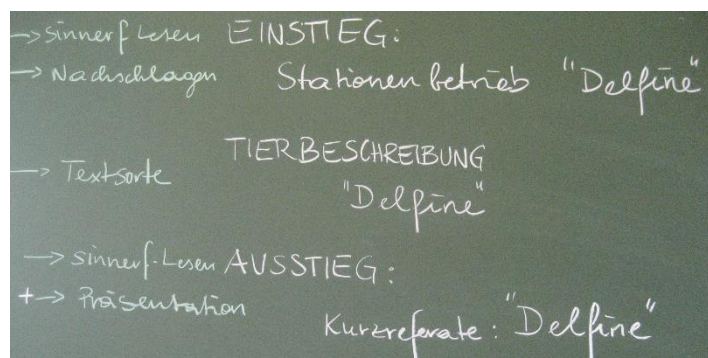 -> sinnerf Lesen EINSTIEG:
-> Nachschlagen Stationenbetrieb "Delfine"
TIERBESCHREIBUNG
-> Textsorte
"Delfine"
-> sinnerf. Lesen AUSSTIEG:
+-> Präsentation
Kurzreferate: "Delfine"